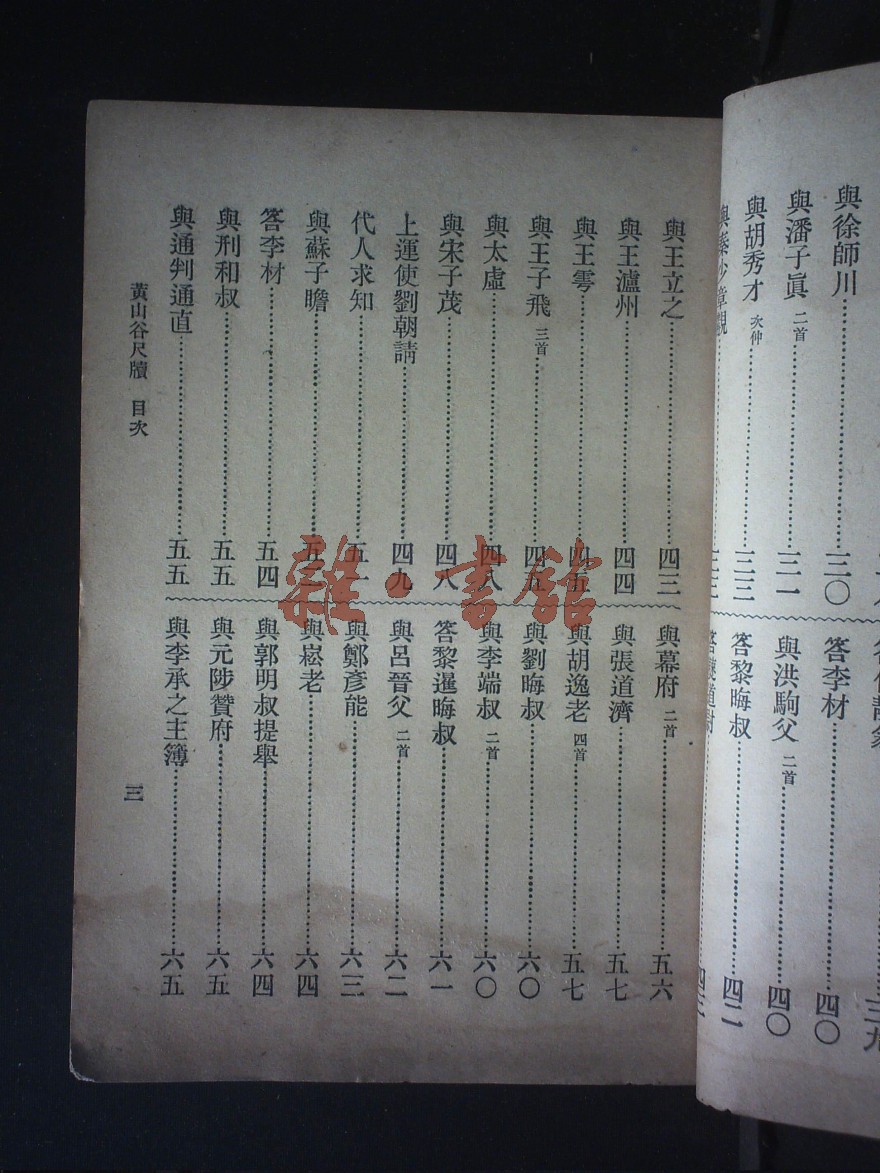 與徐師川……三〇
與潘子眞 二首……三一
與胡秀才 次仲……三三
答李材……四〇
與洪駒父 二首……四〇
答黎晦叔……四二
與王立之……四三
與王瀘州……四四
與王雩……四五
與王子飛 三首……四五
與太虛……四八
與宋子茂……四八
上運使劉朝請……四九
代人求知……五一
與蘇子瞻……五
答李材……五四
與刑和叔……五五
與通判通直……五五
與幕府 二首……五六
與張道濟……五七
與胡逸老 四首……五七
與劉晦叔……六〇
與李端叔 二首……六〇
答黎暹晦叔……六一
與呂晉父 二首……六二
與鄭彥能……六三
與崧老……六四
與郭明叔提舉……六四
與元陟贊府……六五
與李承之主簿……六五
黃山谷尺牘 目次
三
雜·書館